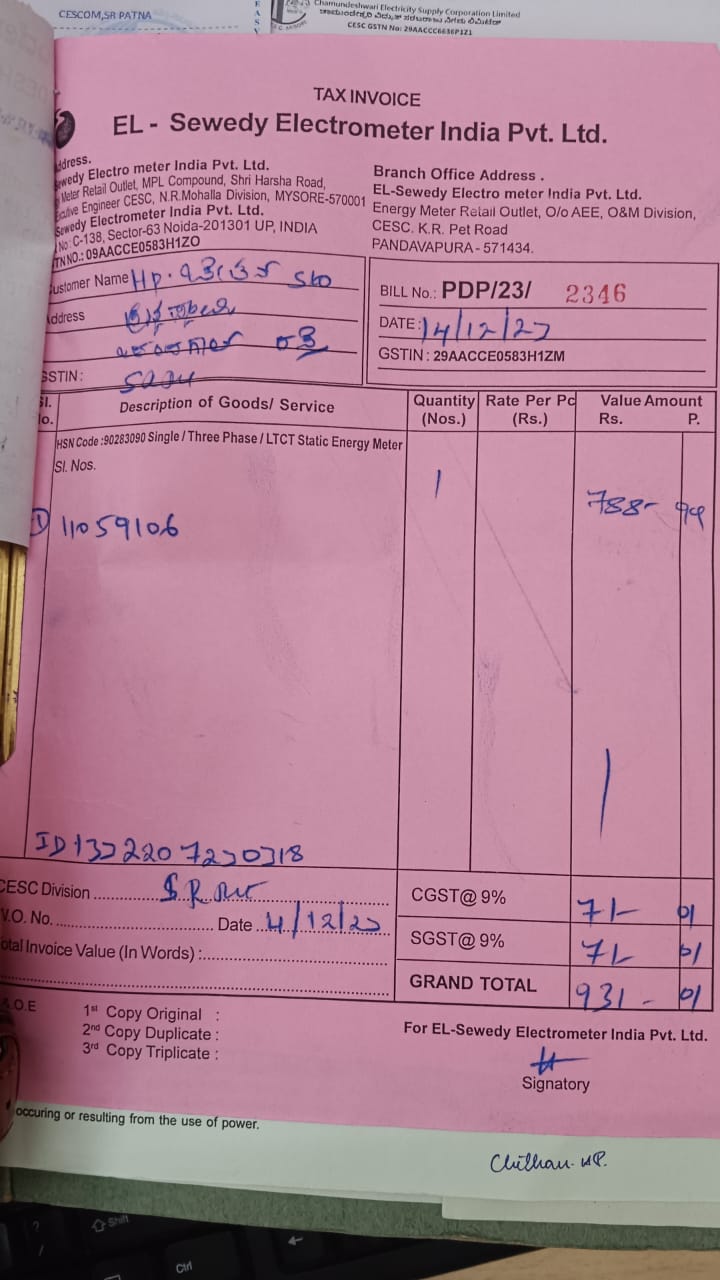 CESCOM,SR PATNA
Chamundeshwari Electricity Supply Corporation Limited
CESC GSTN No: 29AACCC6636P1Z1
TAX INVOICE
EL - Sewedy Electrometer India Pvt. Ltd.
ddress.
ewedy Electro meter India Pvt. Ltd.
Meter Retail Outlet, MPL Compound, Shri Harsha Road,
cutive Engineer CESC, N.R.Mohalla Division, MYSORE-570001
Sewedy Electrometer India Pvt. Ltd.
No: C-138, Sector-63 Noida-201301 UP, INDIA
TN NO.: 09AACCE0583H1ZO
Branch Office Address .
EL-Sewedy Electro meter India Pvt. Ltd.
Energy Meter Retail Outlet, O/o AEE, O&M Division,
CESC. K.R. Pet Road
PANDAVAPURA - 571434.
ustomer Name Hp.
ddress
03
GSTIN :
BILL No.: PDP/23/ 2346
DATE: 14/12/23
GSTIN : 29AACCE0583H1ZM
Sl. No. Description of Goods/ Service Quantity (Nos.) Rate Per Pc (Rs.) Value Amount Rs. P.
HSN Code :90283090 Single / Three Phase / LTCT Static Energy Meter
Sl. Nos.
1 788- 99
1) 11059106
CESC Division
V.O. No. Date
otal Invoice Value (In Words) :
CGST@ 9% 71- 01
SGST@ 9% 71- 01
GRAND TOTAL 931- 01
& O.E
1st Copy Original :
2nd Copy Duplicate :
3rd Copy Triplicate :
For EL-Sewedy Electrometer India Pvt. Ltd.
Signatory
occuring or resulting from the use of power.
Chethan. HP.
Shift
Ctrl